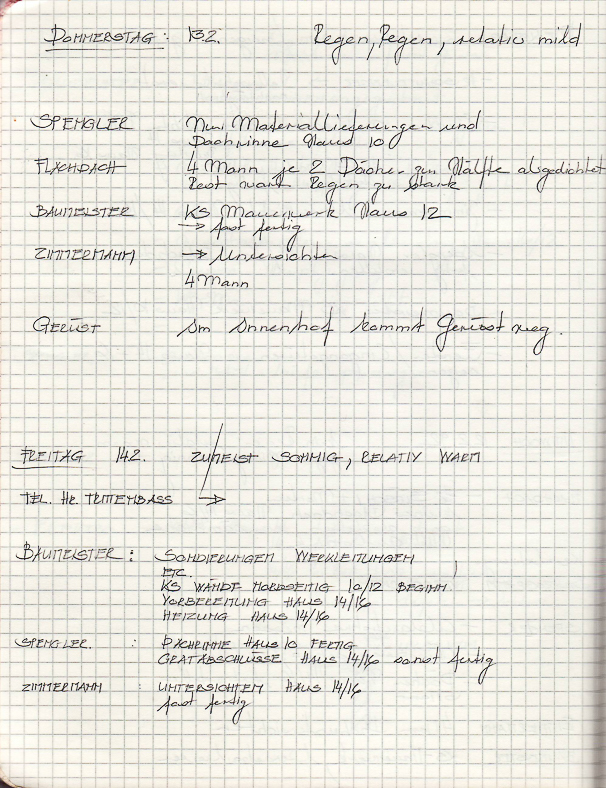 DONNERSTAG: 13.2. Regen, Regen, relativ mild
SPENGLER Nur Materiallieferungen und
Dachrinne Haus 10
FLACHDACH 4 Mann je 2 Dächer zur Hälfte abgedichtet
Rest war Regen zu stark
BAUMEISTER KS Mauerwerk Haus 12
→ fast fertig
ZIMMERMANN → Untersichten
4 Mann
GERÜST Im Innenhof kommt Gerüst weg.
FREITAG 14.2. ZUMEIST SONNIG, RELATIV WARM
TEL. Hr. →
BAUMEISTER: SONDIERUNGEN WERKLEITUNGEN
ETC.
KS WÄNDE NORDSEITIG 10/12 BEGINN
VORBEREITUNG HAUS 14/16
HEIZUNG HAUS 14/16
SPENGLER: DACHRINNE HAUS 10 FERTIG
GRATABSCHLÜSSE HAUS 14/16 sonst fertig
ZIMMERMANN: UNTERSICHTEN HAUS 14/16
fast fertig